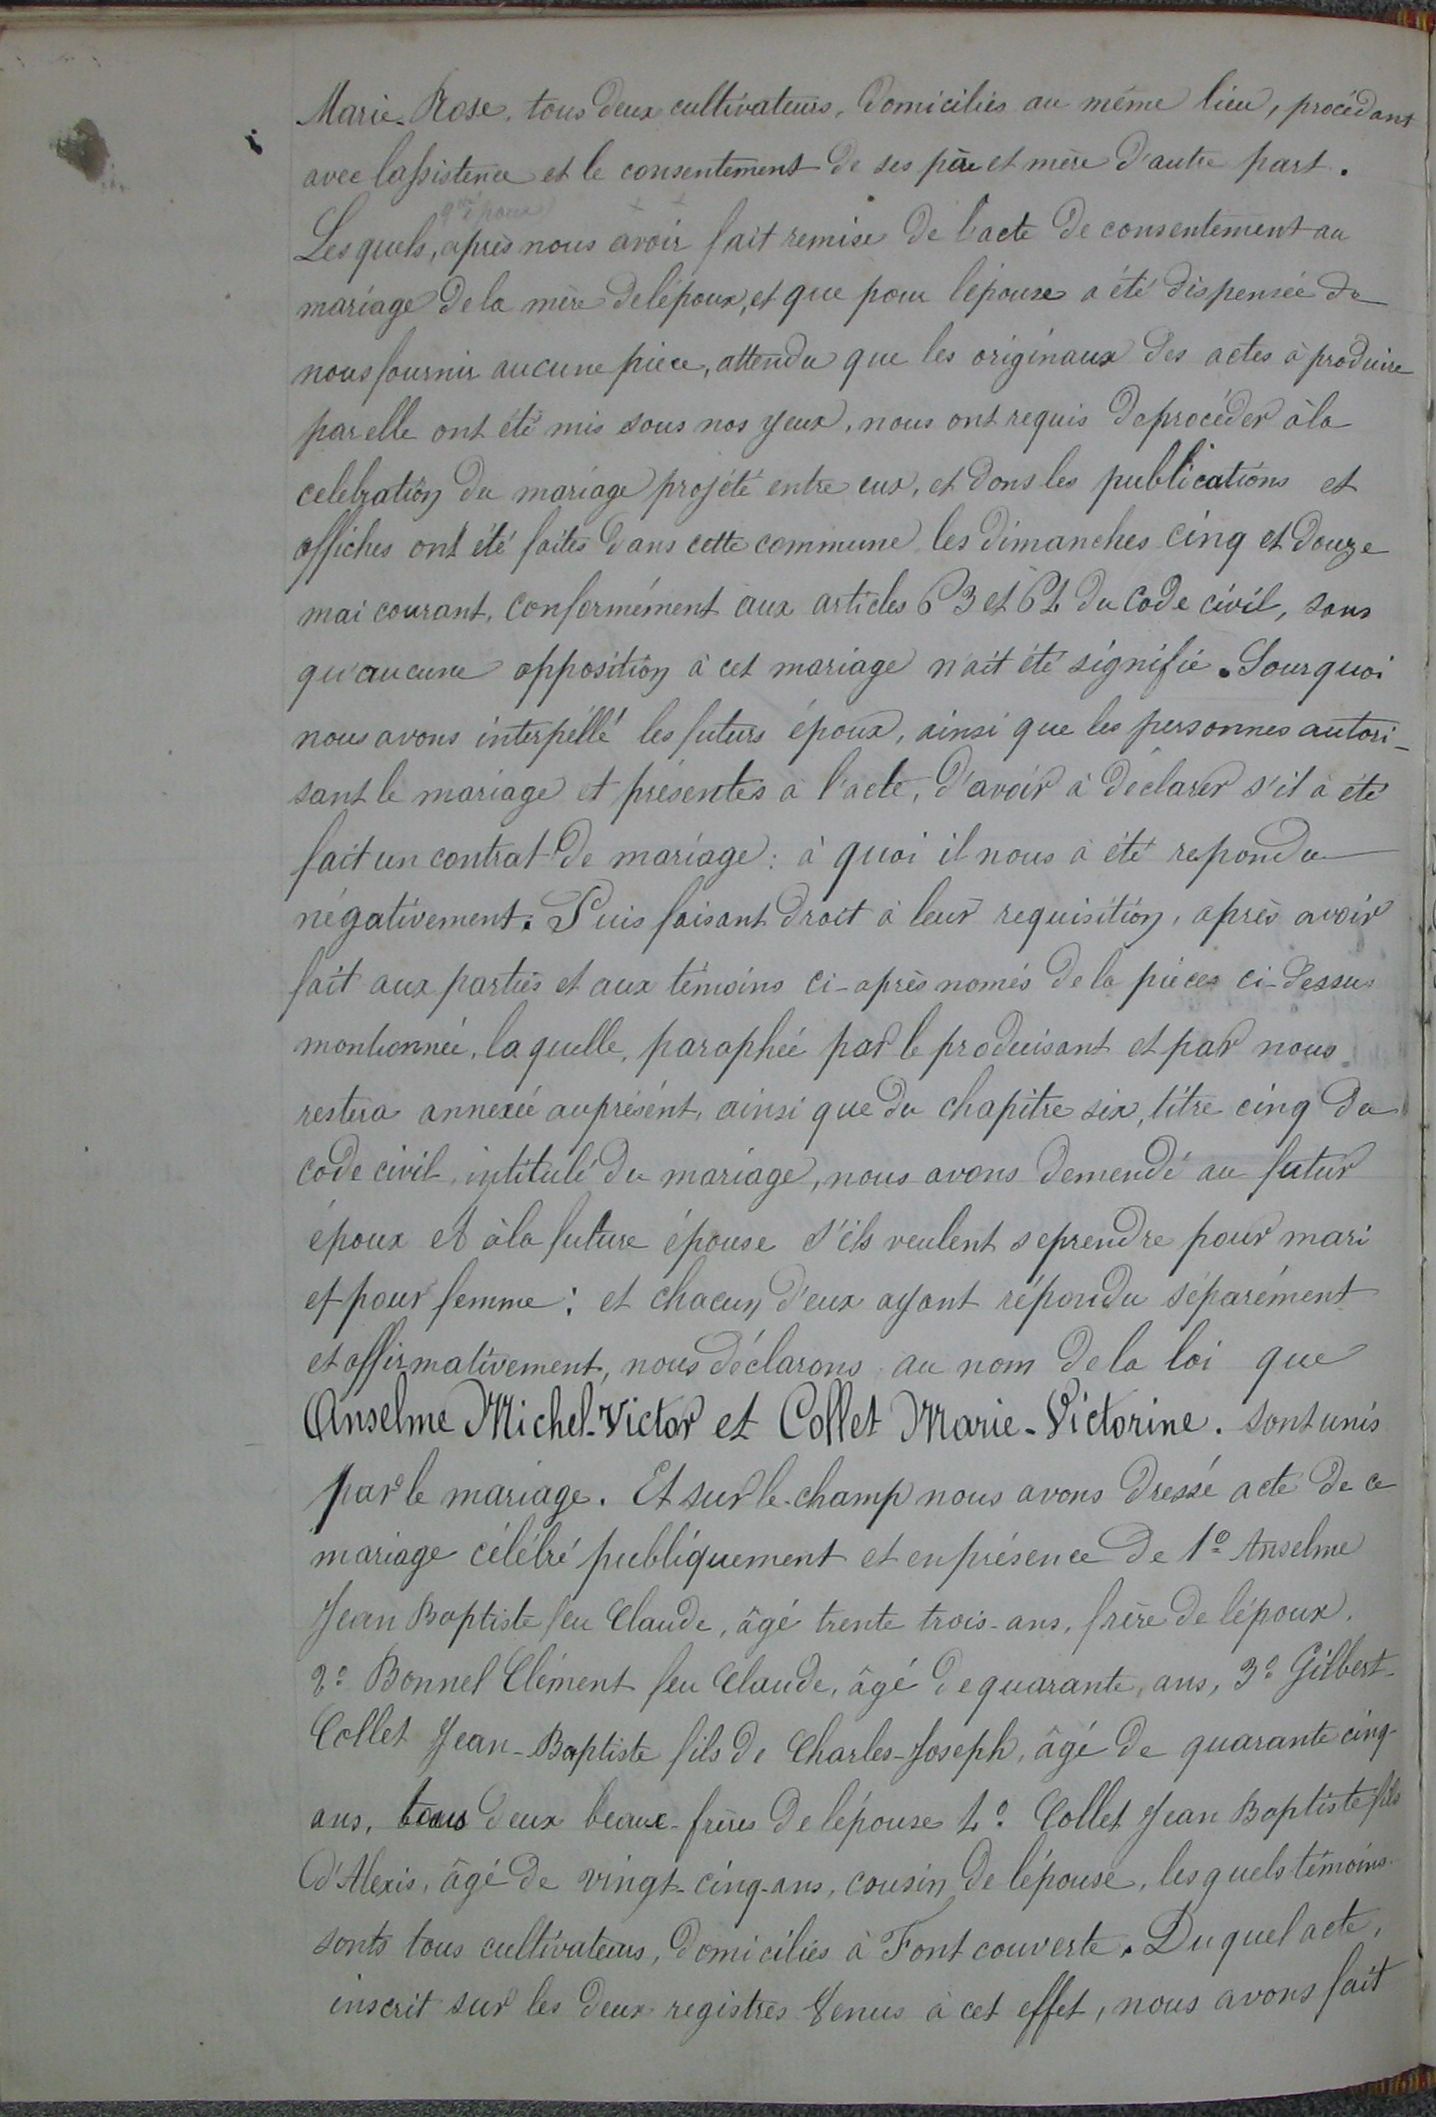 Marie-Rose, tous deux cultivateurs, domiciliés au même lieu, procédant
avec lassistence et le consentement de ses père et mère d'autre part.
Lesquels, après nous avoir fait remise de l'acte de consentement au
mariage de la mère delépoux, et que pour lépouse a été dispensée de
nous fournir aucune pièce, attendu que les originaux des actes à produire
par elle ont été mis sous nos yeux, nous ont requis de procéder à la
celebration du mariage projété entre eux, et dont les publications et
affiches ont été faites dans cette commune les dimanches cinq et douze
mai courant, conformément aux articles 63 et 64 du code civil, sans
qu'aucune opposition à cet mariage n'ait été signifié. Pourquoi
nous avons interpéllé les futurs époux, ainsi que les personnes autori-
sant le mariage et présentes à l'acte, d'avoir à déclarer s'il à été
fait un contrat de mariage : à quoi il nous à été repondu
négativement. Puis faisant droit à leur requisition, après avoir
fait aux parties et aux témoins ci-après només de la pièces ci-dessus
montionnée, laquelle, paraphée par le produisant et par nous
restera annexée auprésent, ainsi que du chapitre six, titre cinq du
code civil, intitulé du mariage, nous avons demendé au futur
époux et à la future épouse s'ils veulent se prendre pour mari
et pour femme ; et chacun d'eux ayant répondu séparément
et affirmativement, nous déclarons au nom de la loi que
Anselme Michel-Victor et Collet Marie-Victorine. sont unis
par le mariage. Et sur le-champ nous avons dressé acte de ce
mariage célébré publiquement et en présence de 1º Anselme
Jean Baptiste feu Claude, âgé trente trois-ans, frère de lépoux,
2º Bonnel Clément feu Claude, âgé de quarante, ans, 3º Gilbert-
Collet Jean-Baptiste fils de Charles-Joseph, âgé de quarante cinq-
ans, tous deux beaux-frères de lépouse 4º Collet Jean Baptiste fils
d'Alexis, âgé de vingt-cinq-ans, cousin de lépouse, lesquels témoins
sonts tous cultivateurs, domiciliés à Fontcouverte. Duquel acte,
inscrit sur les deux registres tenus à cet effet, nous avons fait